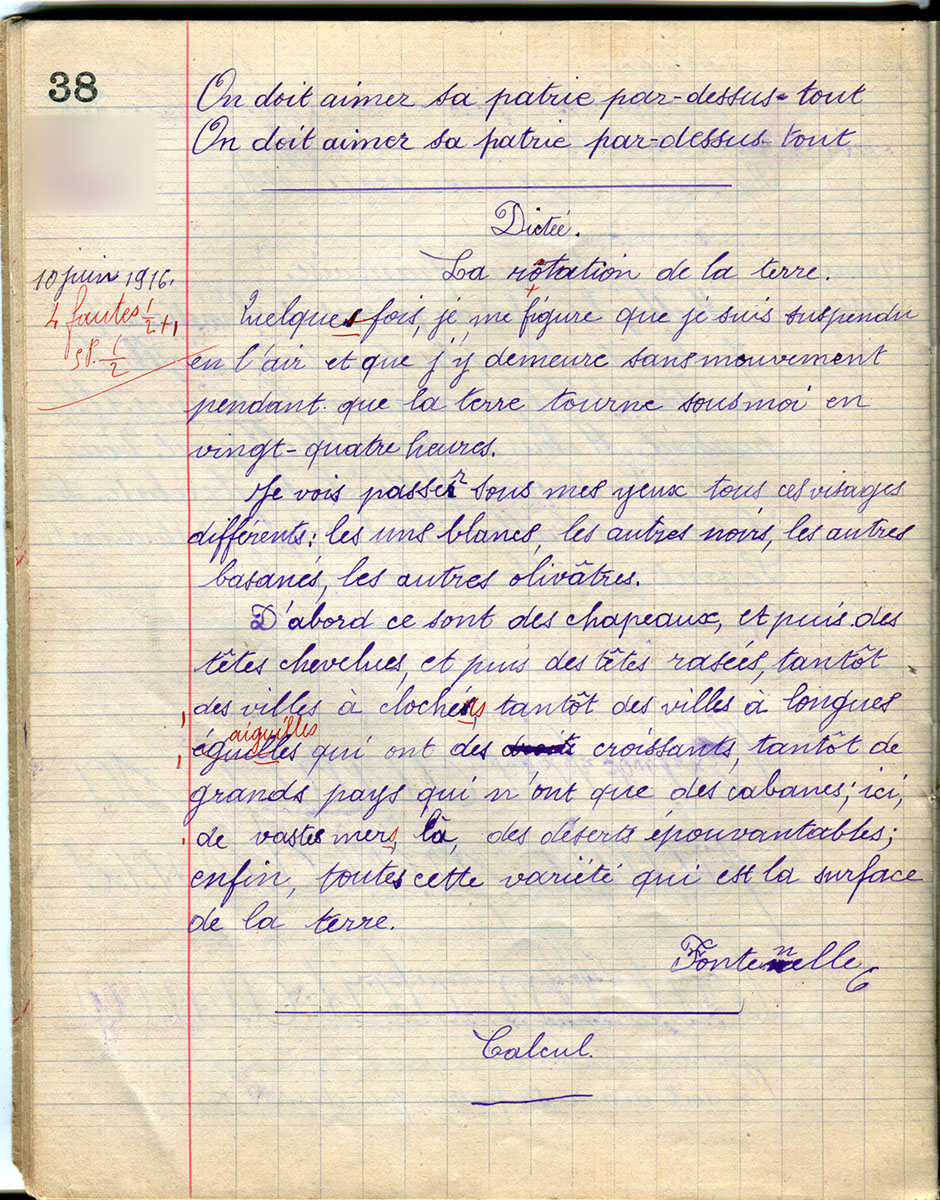 38
On doit aimer sa patrie par-dessus-tout
On doit aimer sa patrie par-dessus-tout
Dictée.
La rôtation de la terre.
10 juin 1916.
4 fautes 1/2 + 1
sp. 1/2
Quelques fois, je me figure que je suis suspendu
en l'air et que j'y demeure sans mouvement
pendant que la terre tourne sous moi en
vingt-quatre heures.
Je vois passer sous mes yeux tous ces visages
différents: les uns blancs, les autres noirs, les autres
basanés, les autres olivâtres.
D'abord ce sont des chapeaux, et puis des
têtes chevelues, et puis des têtes rasées, tantôt
des villes à clochers, tantôt des villes à longues
aiguilles
éguelles qui ont des croissants, tantôt de
grands pays qui n'ont que des cabanes; ici,
de vastes mers, là, des déserts épouvantables;
enfin, toutes cette variété qui est la surface
de la terre.
Fontenelle
Calcul.